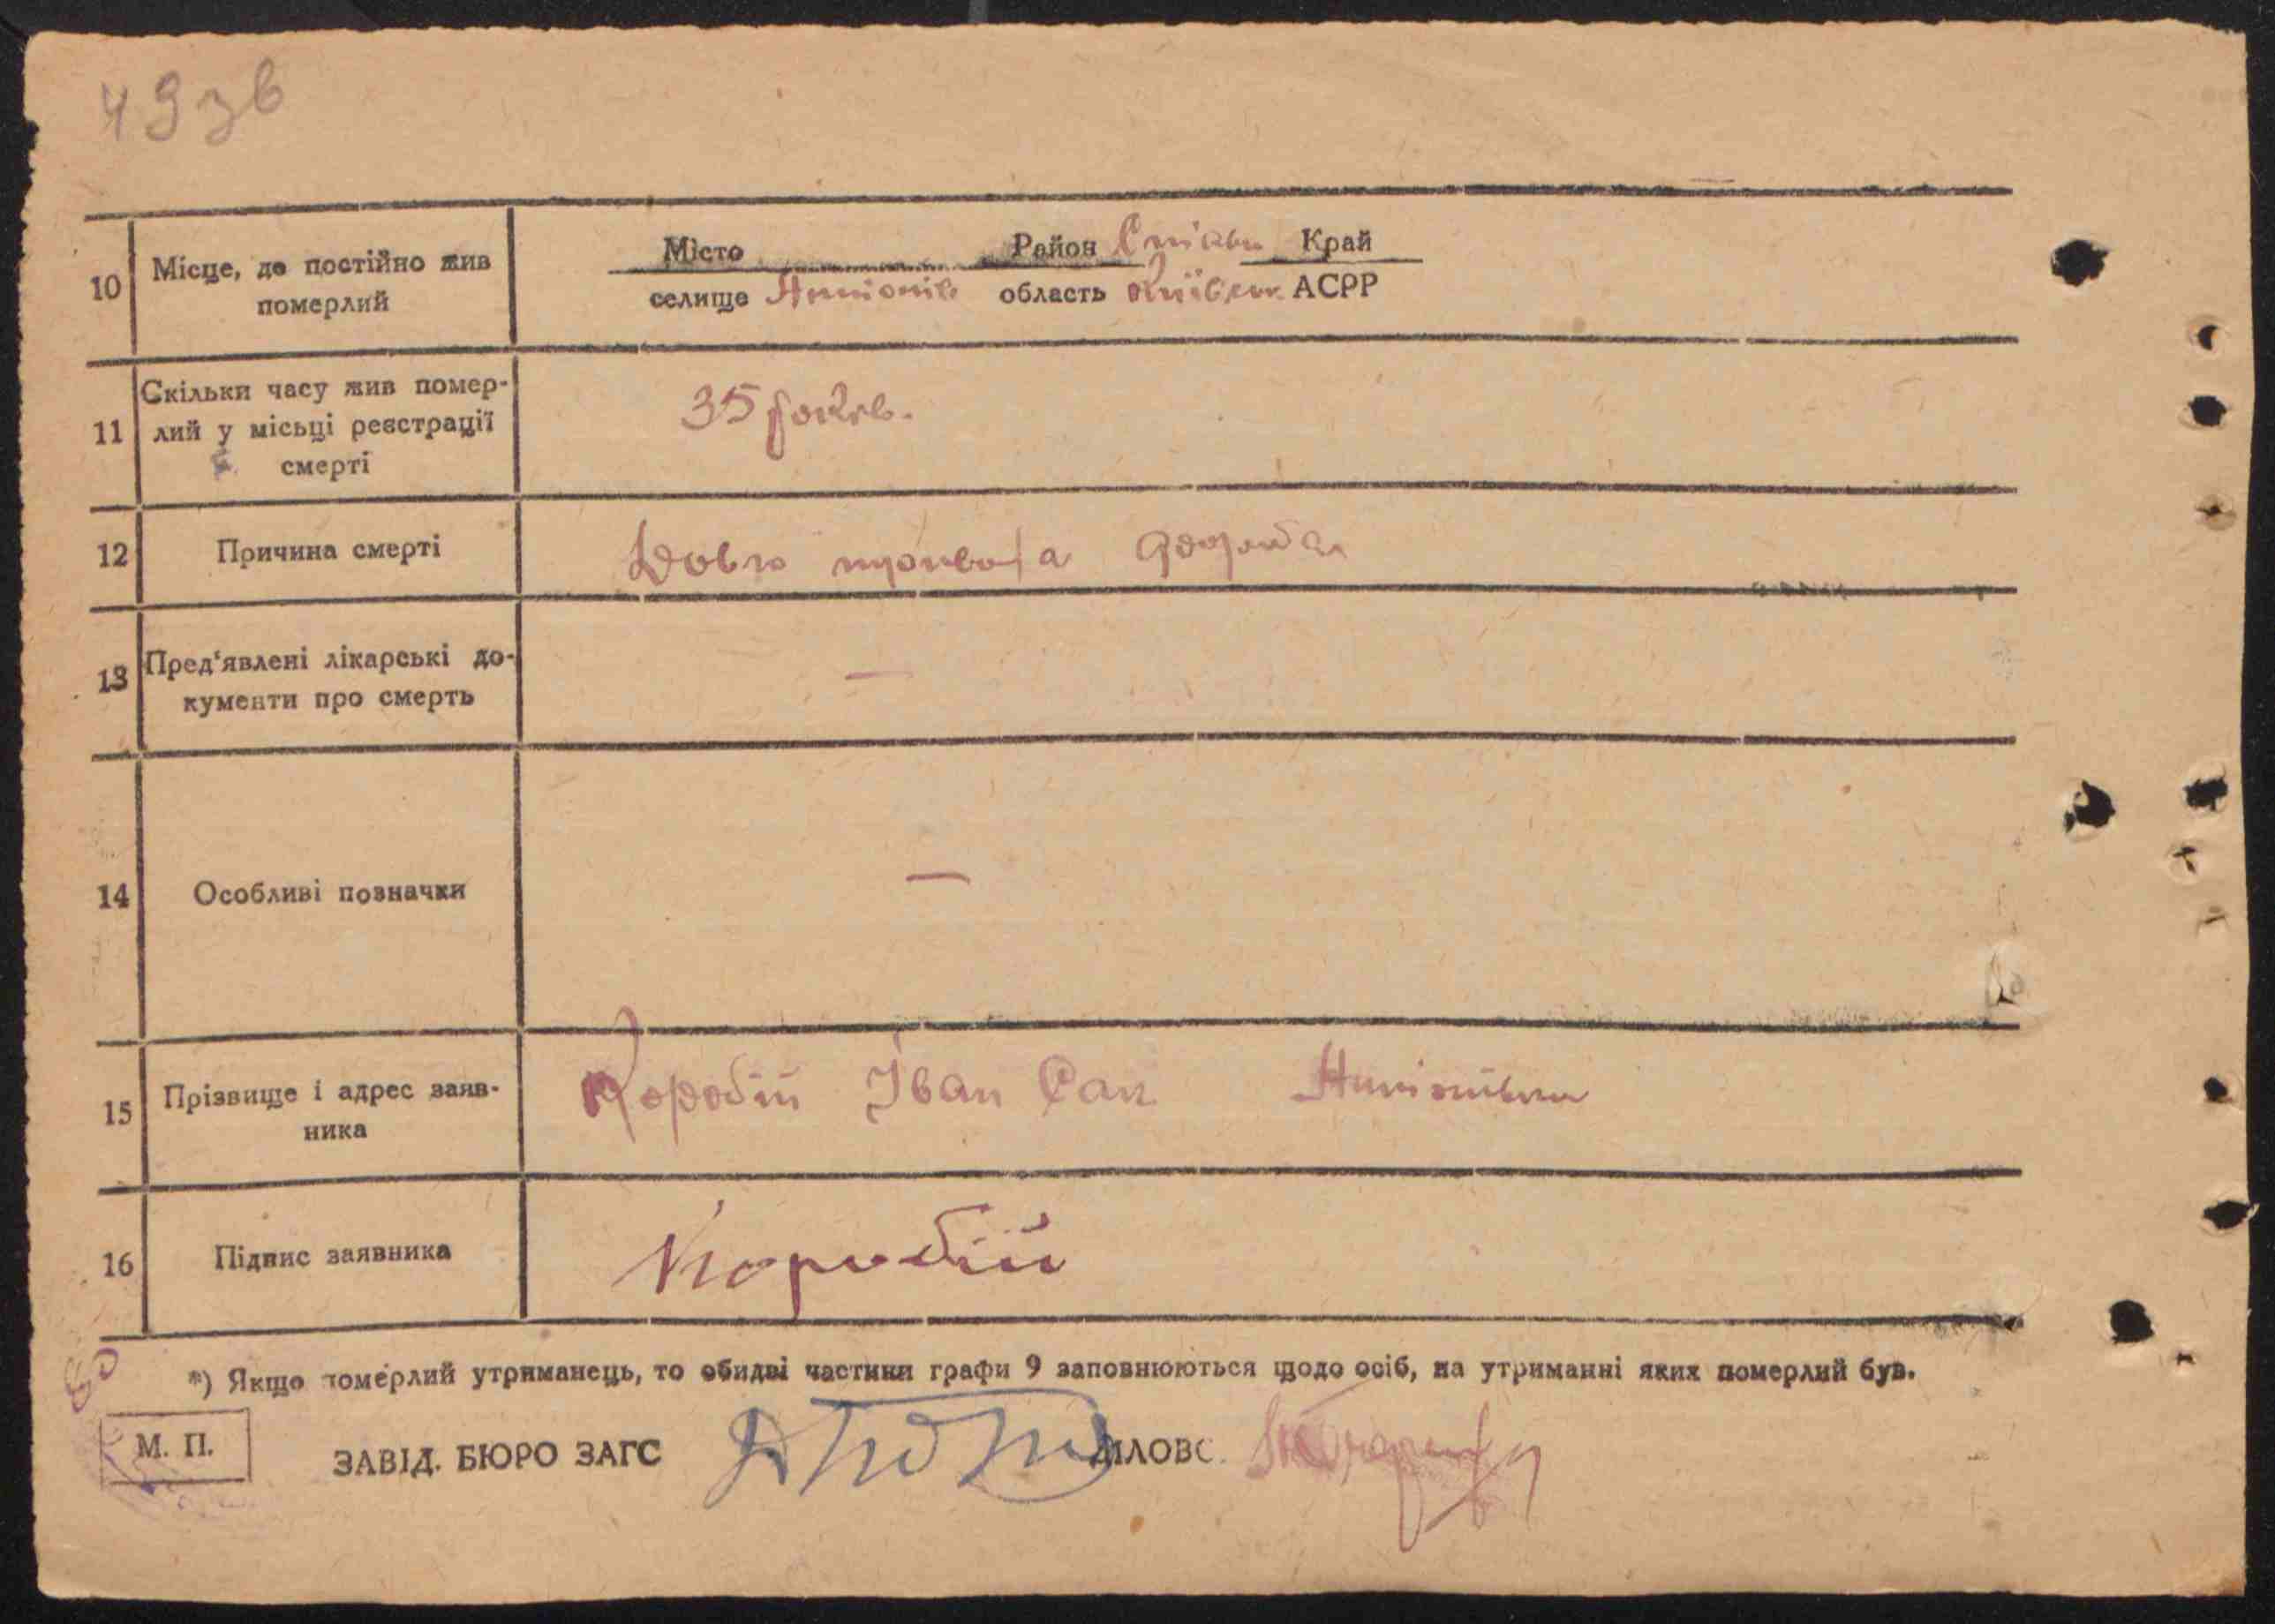 493в
10
Місце, де постійно жив
померлий
Місто Район Край
селище область Київськ АСРР
11
Скільки часу жив помер-
лий у місьці реєстрації
смерті
35 років.
12
Причина смерті
Довго
13
Пред'явлені лікарські до-
кументи про смерть
—
14
Особливі позначки
—
15
Прізвище і адрес заяв-
ника
Коробій Іван Сак
16
Підпис заявника
Коробій
*) Якщо померлий утриманець, то обидві частини графи 9 заповнюються щодо осіб, на утриманні яких померлий був.
М. П.
ЗАВІД. БЮРО ЗАГС ДІЛОВС.